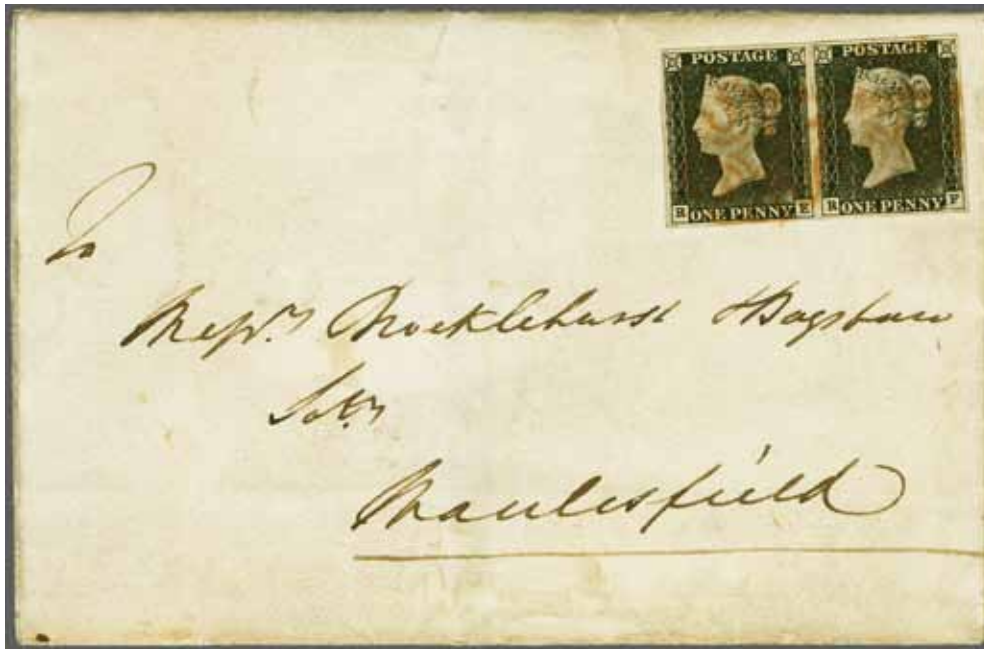 POSTAGE POSTAGE
R ONE PENNY E R ONE PENNY F
To
Messrs Brocklehurst & Bagshaw
Solrs
Macclesfield